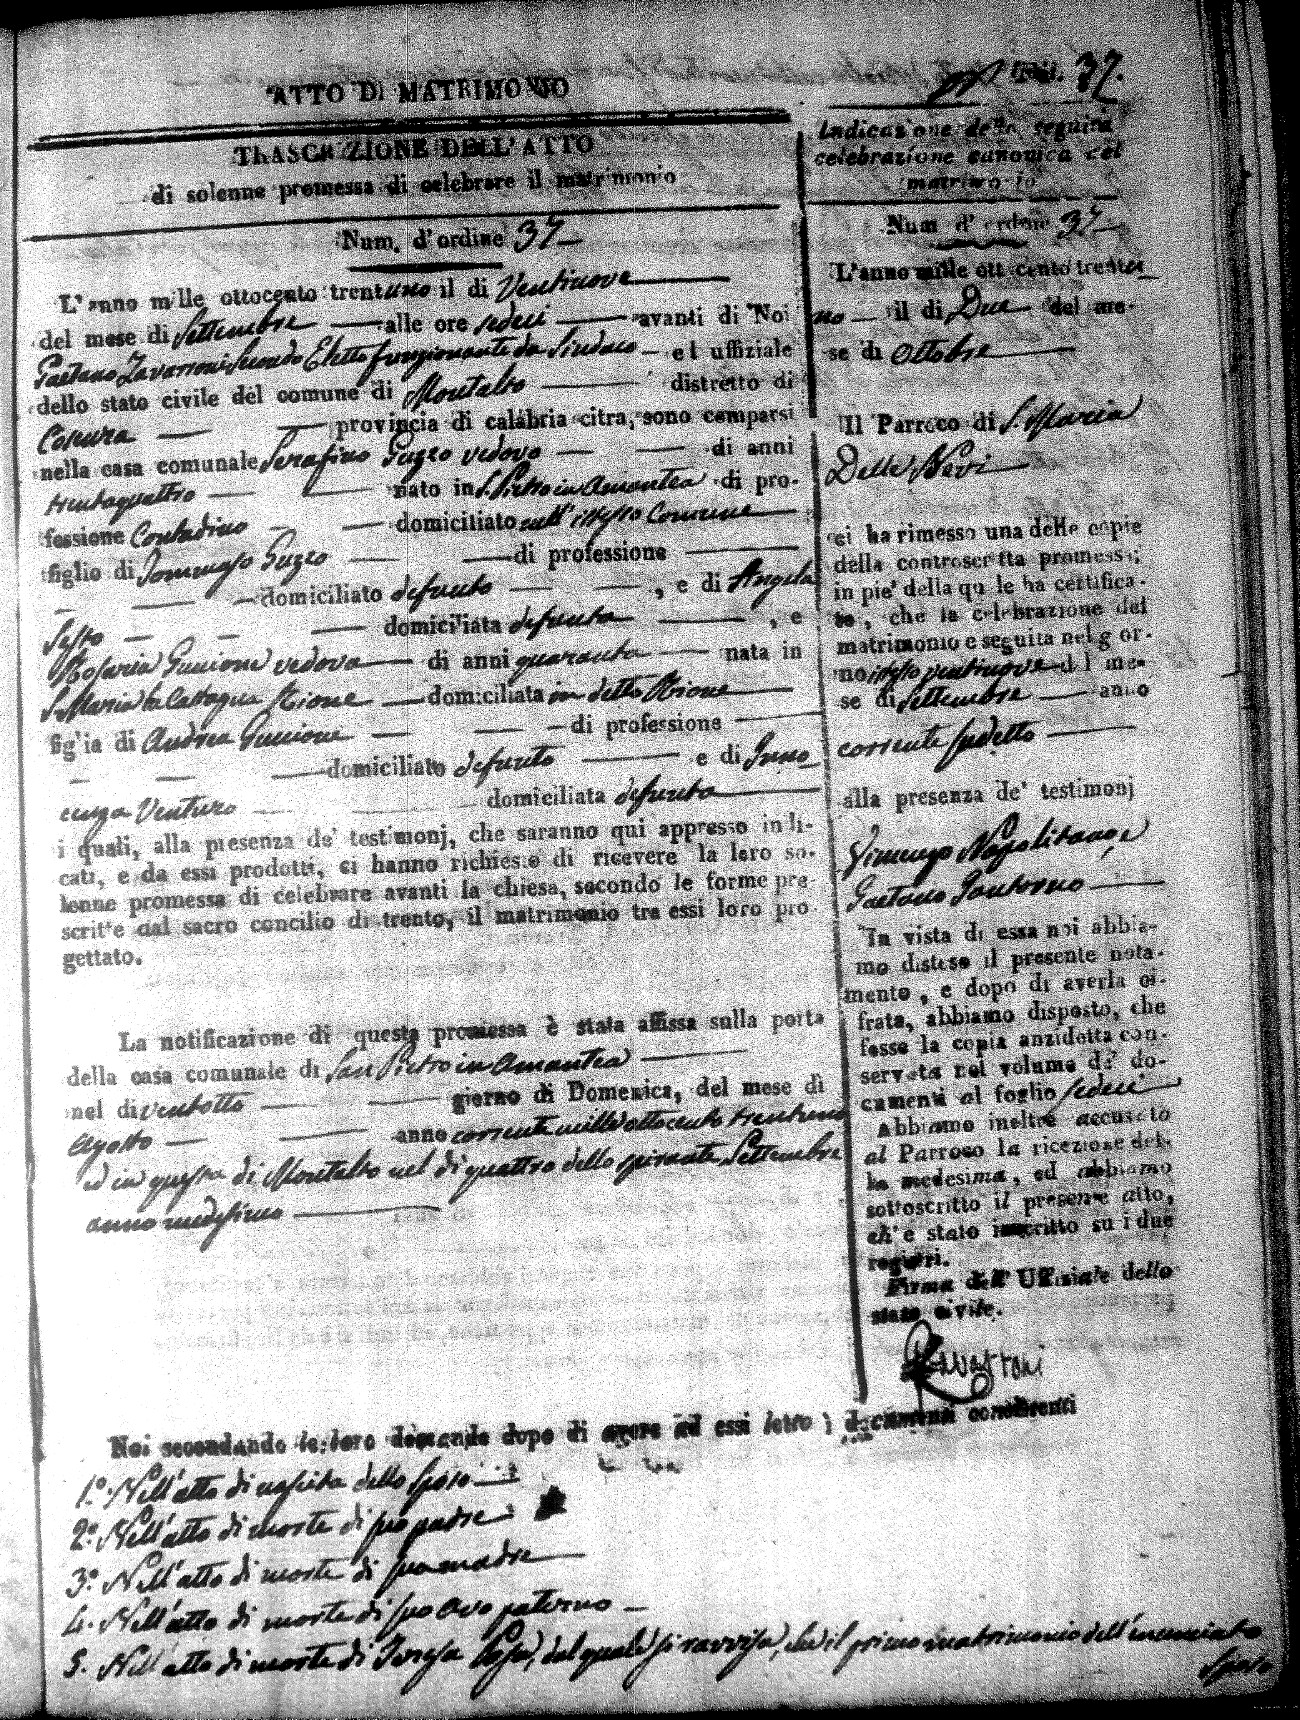 ATTO DI MATRIMONIO
37.
TRASCRIZIONE DELL'ATTO
di solenne promessa di celebrare il matrimonio
Num. d'ordine 37
L'anno mille ottocento trentuno il di Ventinove
del mese di Settembre alle ore sedeci avanti di Noi
Gaetano Zavarroni Secondo Eletto funzionante da Sindaco ed uffiziale
dello stato civile del comune di Montalto distretto di
Cosenza provincia di calabria citra, sono comparsi
nella casa comunale Serafino vedovo di anni
trentaquattro nato in S. Pietro in Amantea di pro-
fessione Contadino domiciliato nell'istesso Comune
figlio di Domenico di professione
domiciliato defunto , e di Angela
Sesto domiciliata defunta , e
Rosaria Guccione vedova di anni quaranta nata in
S. Maria la Castagna Rione domiciliata in detto Rione
figlia di Andrea Guccione di professione
domiciliato defunto e di Inno
cenza Venturo domiciliata defunta
i quali, alla presenza de' testimonj, che saranno qui appresso indi-
cati, e da essi prodotti, ci hanno richiesto di ricevere la loro so-
lenne promessa di celebrare avanti la chiesa, secondo le forme pre-
scritte dal sacro concilio di trento, il matrimonio tra essi loro pro
gettato.
La notificazione di questa promessa è stata affissa sulla porta
della casa comunale di San Pietro in Amantea
nel di ventotto giorno di Domenica, del mese di
Agosto anno corrente mille ottocento trentuno
ed in questa di Montalto nel di quattro dello spirante Settembre
anno medesimo
Indicazione della seguita
celebrazione canonica del
matrimonio
Num d'ordine 37
L'anno mille ottocento trentu
no il di Due del me-
se di Ottobre
Il Parroco di S. Maria
Delle Nevi
ci ha rimesso una delle copie
della controscritta promessa;
in pie' della quale ha certifica-
to, che la celebrazione del
matrimonio e seguita nel gior-
no istesso ventinove del me-
se di Settembre anno
corrente sudetto
alla presenza de' testimonj
Vincenzo Napolitano, e
Gaetano
In vista di essa noi abbia-
mo disteso il presente nota-
mento, e dopo di averla ci-
frata, abbiamo disposto, che
fosse la copia anzidetta con-
servata nel volume de' do-
cumenti al foglio sedeci
Abbiamo inoltre accusato
al Parroco la ricezione del-
la medesima, ed abbiamo
sottoscritto il presente atto,
ch'è stato inscritto su i due
registri.
Firma dell' Uffiziale dello
stato civile.
Zavarroni
Noi secondando le loro domande dopo di avere ad essi letto i documenti consistenti
1.° Nell'atto di nascita dello Sposo
2.° Nell'atto di morte di suo padre
3.° Nell'atto di morte di sua madre
4. Nell'atto di morte di suo avo paterno
5. Nell'atto di morte di Teresa dal quale si ravvisa, che il primo matrimonio dell'enunciato
Sposo